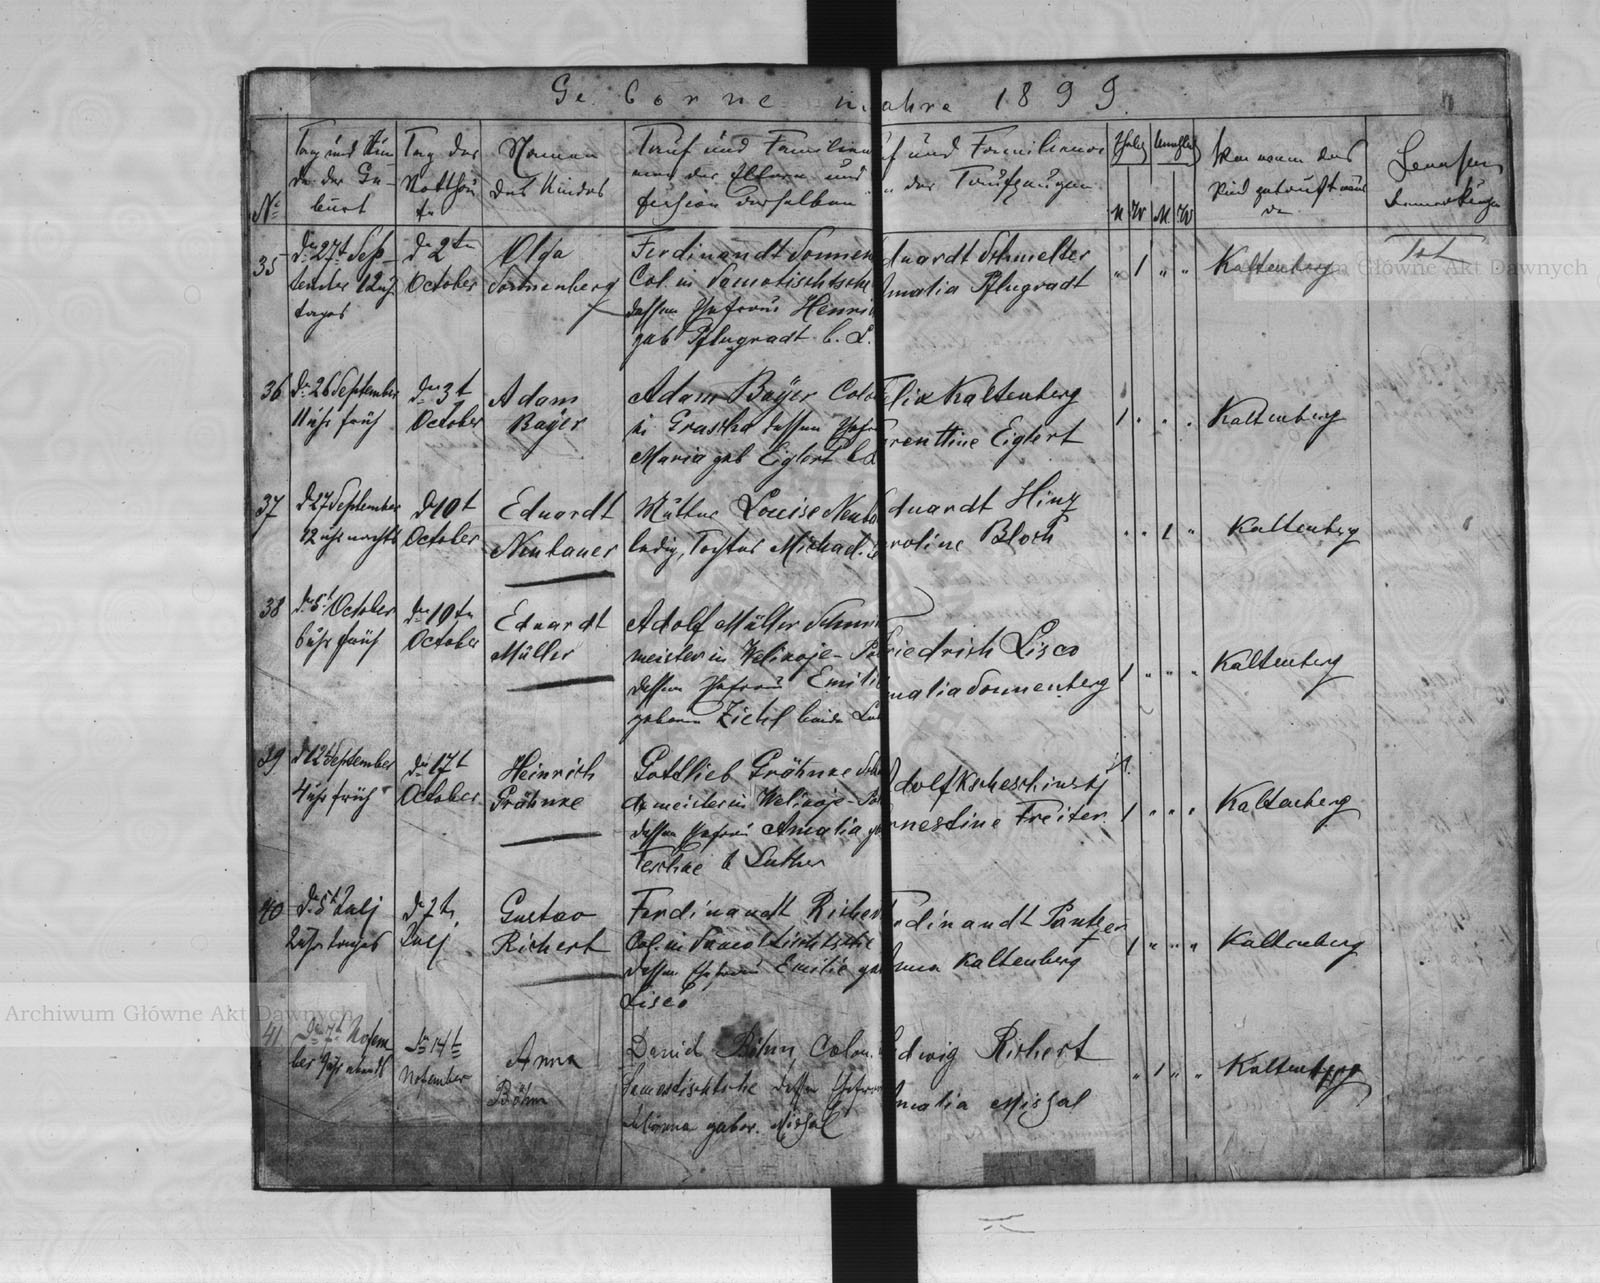 Geborne im Jahre 1899
№
Tag und Stun
de der Ge-
burt
Tag der
Nottau
fe
Namen
des Kindes
Tauf und Familien
der Eltern und
derselben
und Familiennamen
der Taufzeugen
Ehelig
Unehelig
M W M W
Von wem das
Kind getauft
Bemerkungen
35
Den 27t Sep-
tember 12 Uhr
tages
Den 2ten
October
Olga
Sonnenberg
Ferdinandt Sonnen
Col. in Samotischtsche
dessen Ehefrau Henri
geb Pflugradt b. L.
duardt Schmelter
Amalia Pflugradt
„ 1 „ „
Kaltenberg
Tot
36
Den 26 September
11 Uhr früh
Den 3t
October
Adam
Bayer
Adam Bayer Colo
in dessen Ehefr
Maria geb Eiglert b L
Felix Kaltenberg
Eiglert
1 „ „ „
Kaltenberg
37
D 27 September
12 Uhr nachts
D 10t
October
Eduardt
Neubauer
Mutter Louise Neuba
ledig, Tochter Michael
Eduardt Hinz
aroline Bloch
„ „ 1 „
Kaltenberg
38
October
6 Uhr früh
Den 10ten
October
Eduardt
Müller
Adolf Müller
meister in Welikoje-
dessen Ehefrau Emili
geboren beide
Friedrich Lisco
malia Sonnenberg
1 „ „ „
Kaltenberg
39
D 12t September
4 Uhr früh
Den 17t
October
Heinrich
Gröhnke
Gottlieb Gröhnke
meister in Welikoje-
dessen Ehefrau Amalia g
Teschke b Luther
Adolf Kscheschinskj
rnestine Freiter
1 „ „ „
Kaltenberg
40
Den 5t Julj
2 Uhr tages
D 7ten
Julj
Gustav
Richert
Ferdinandt Richert
Col. in Samotischtsche
dessen Ehefrau Emilie ge
Lisco
erdinandt Pantzer
Anna Kaltenberg
1 „ „ „
Kaltenberg
41
De 7t Novem
ber 9 Uhr abends
De 14t
November
Anna
Böhm
Daniel Böhm Colon.
dessen Ehefrau
gebor. Mischal
udwig Richert
malia Mischal
„ 1 „ „
Kaltenberg
Archiwum Główne Akt Dawnych
Archiwum Główne Akt Dawnych